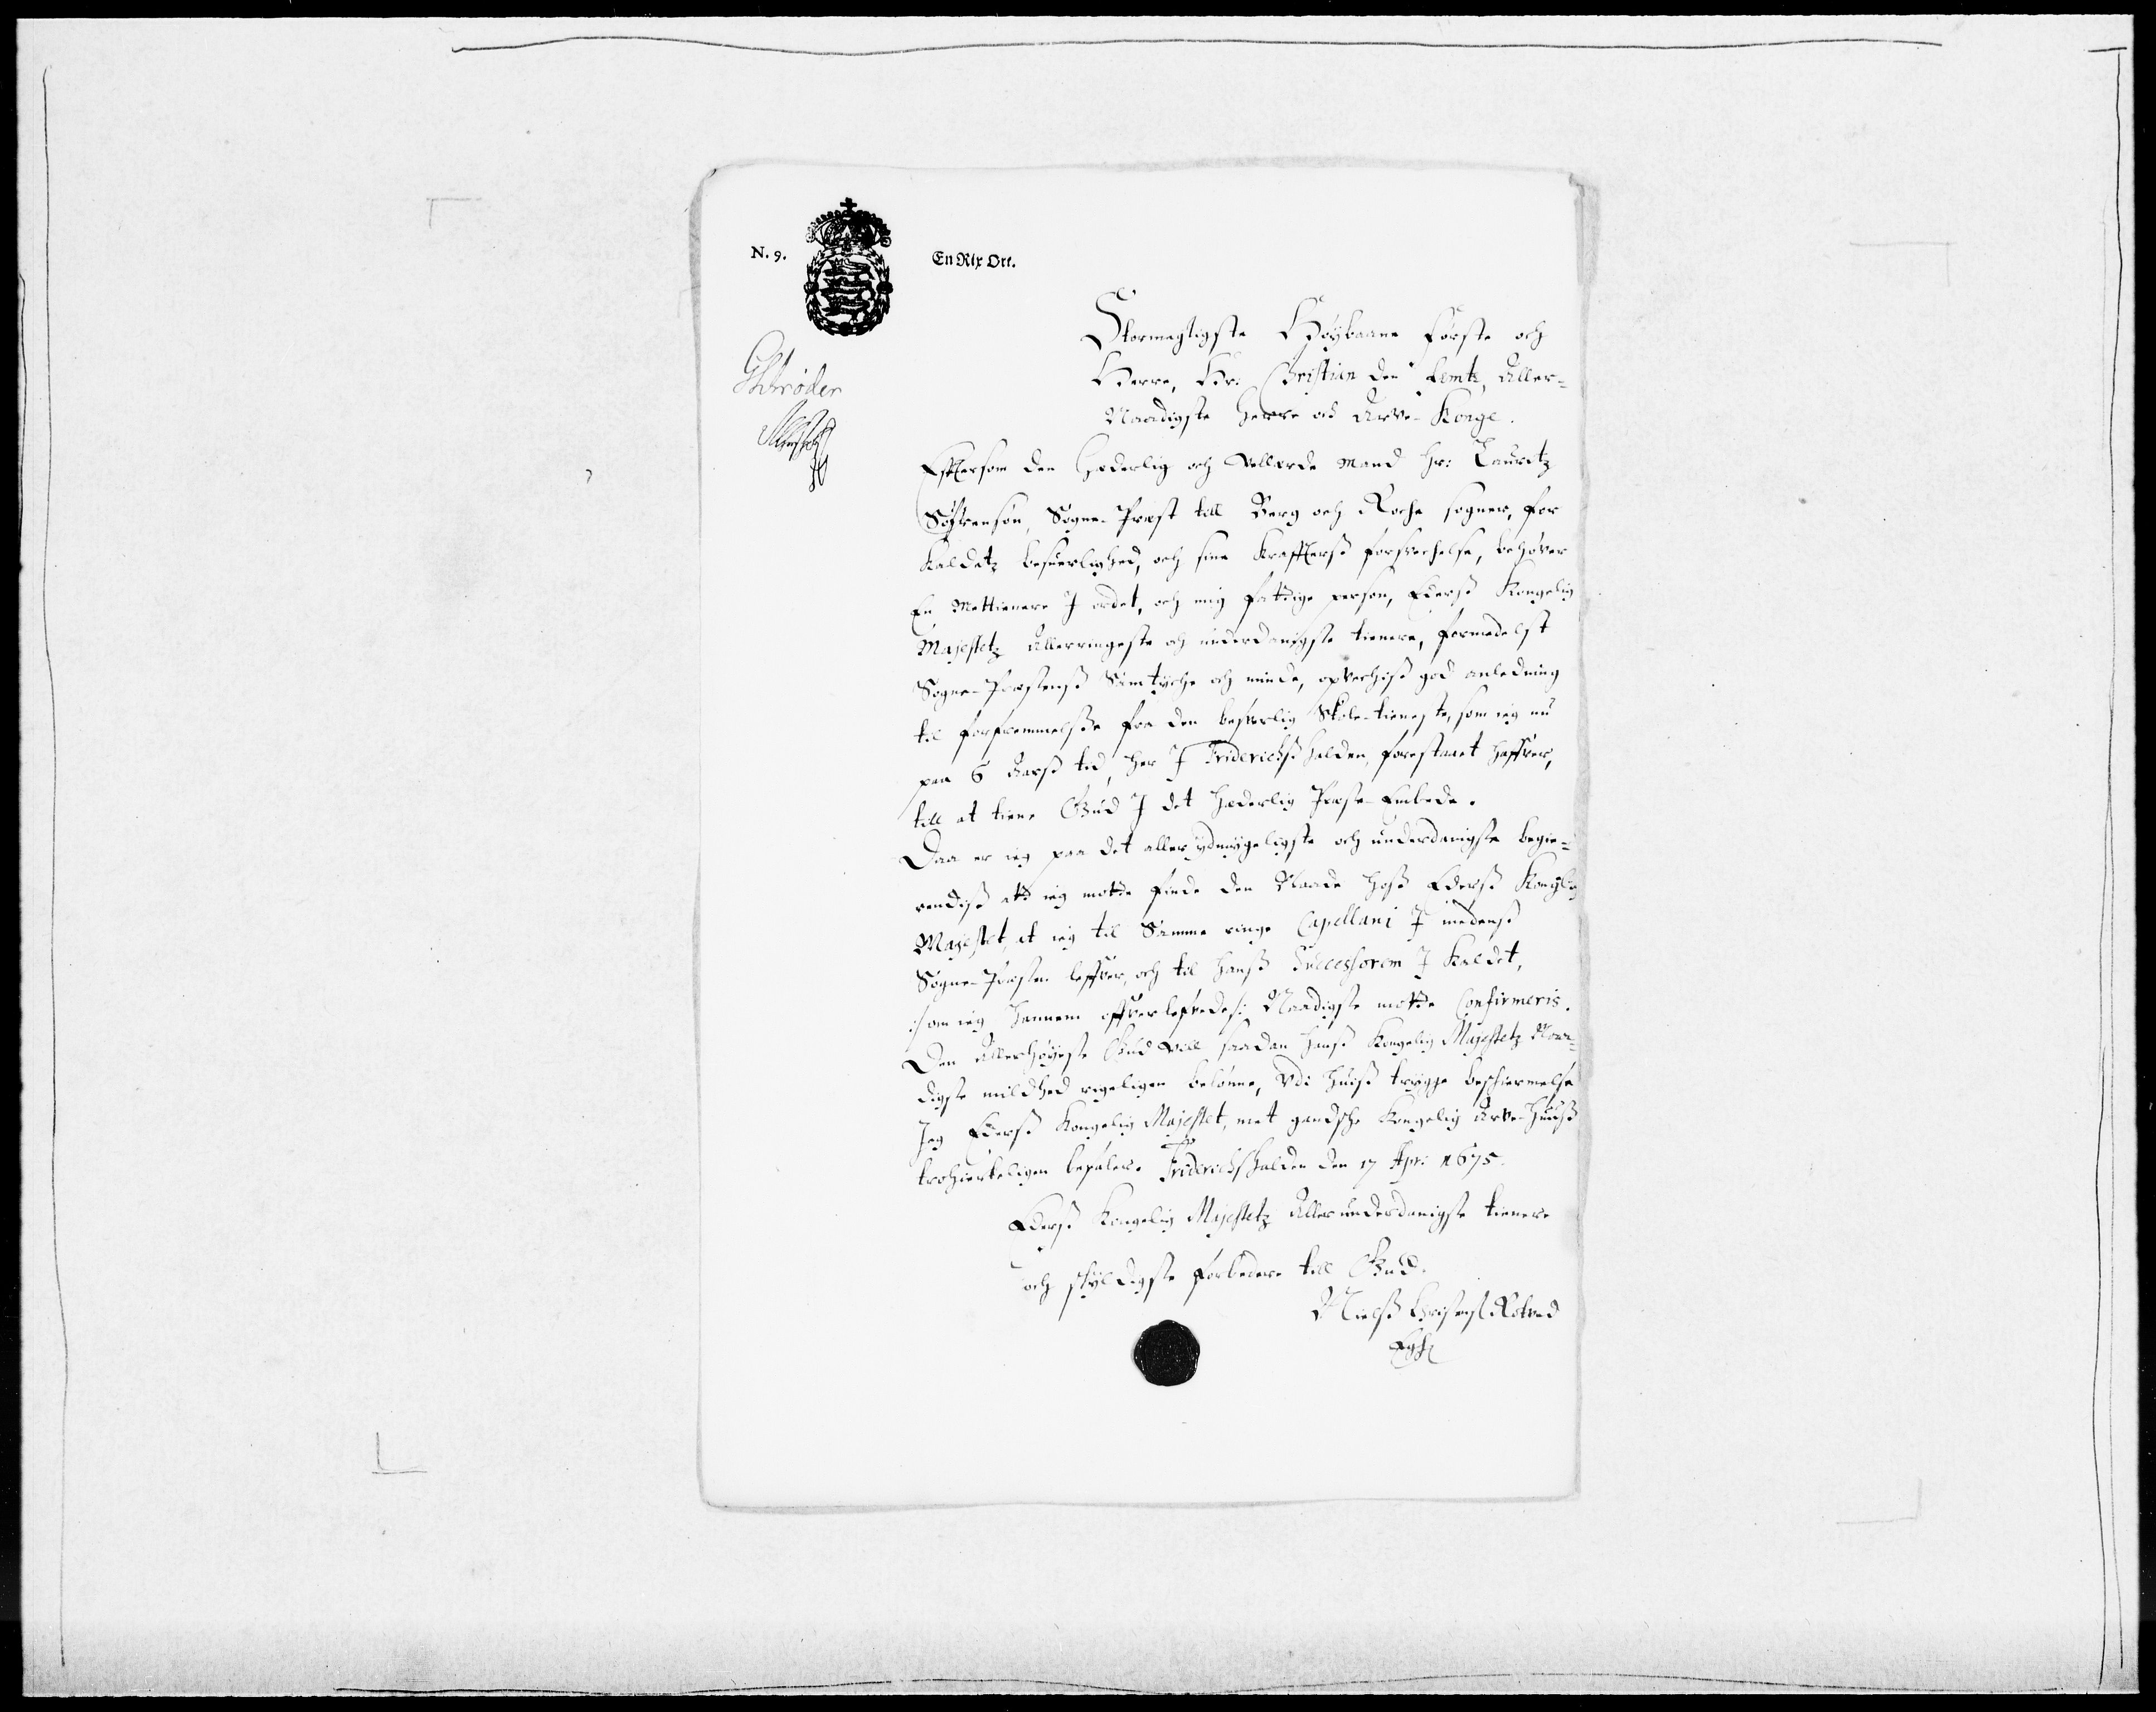 N. 9.
En Rix Ort.
Stormegtigste Høÿbaarne Første och
Herre, Hr: Christian den Femte, Aller-
Naadigste Herre och Arve-Konge.
GSchrøder
Efftersom den Hæderlig och Vellærde Mand Hr: Lauritz
Søffrensøn, Sogne-Præst till Berg och Rocke sogner, for
Kaldetz besuerlighed, och sine Krafftersß forsvechelse, behøver
En Mettienere I ordet, och mig fattige person, Eders Kongelig
Majestetz Allerringeste och underdanigste tienere, formedelst
Sogne-Præstens Samtÿche och minde, opvechiß god anledning
til forfremmelsse fra den besverlig Skole-tieneste, som ieg nu
paa 6 Aarß tid, her I Friderichßhalden, forestaaet haffver,
till at tiene Gud I det Hæderlig Præste-Embede.
Daa er ieg paa det aller ÿdmÿgeligste och underdanigste begie-
rendiß att ieg motte finde den Naade hoß Eders Kongelig
Majestet, at ieg til Samme ringe Capellani I medenß
Sogne-Præsten leffver, och til hanß Successorem I Kaldet,
/: om ieg hannem offverlefvede :/ Naadigste motte Confirmeris.
Den Allerhøÿeste Gud Vill saadan hanß Kongelig Majestetz Naa-
digste mildhed rigeligen belønne, Vdi huiß trÿgge beschiermelse
Jeg Eders Kongelig Majestet, met gandsche Kongelig Arve-Huuß
trohierteligen befaler. Friderichshalden den 17 Apr: 1675.
Eders Kongelig Majestetz Allerunderdanigste tienere
och schÿldigste forbedere till Gud.
Nielß Christensß Rotved